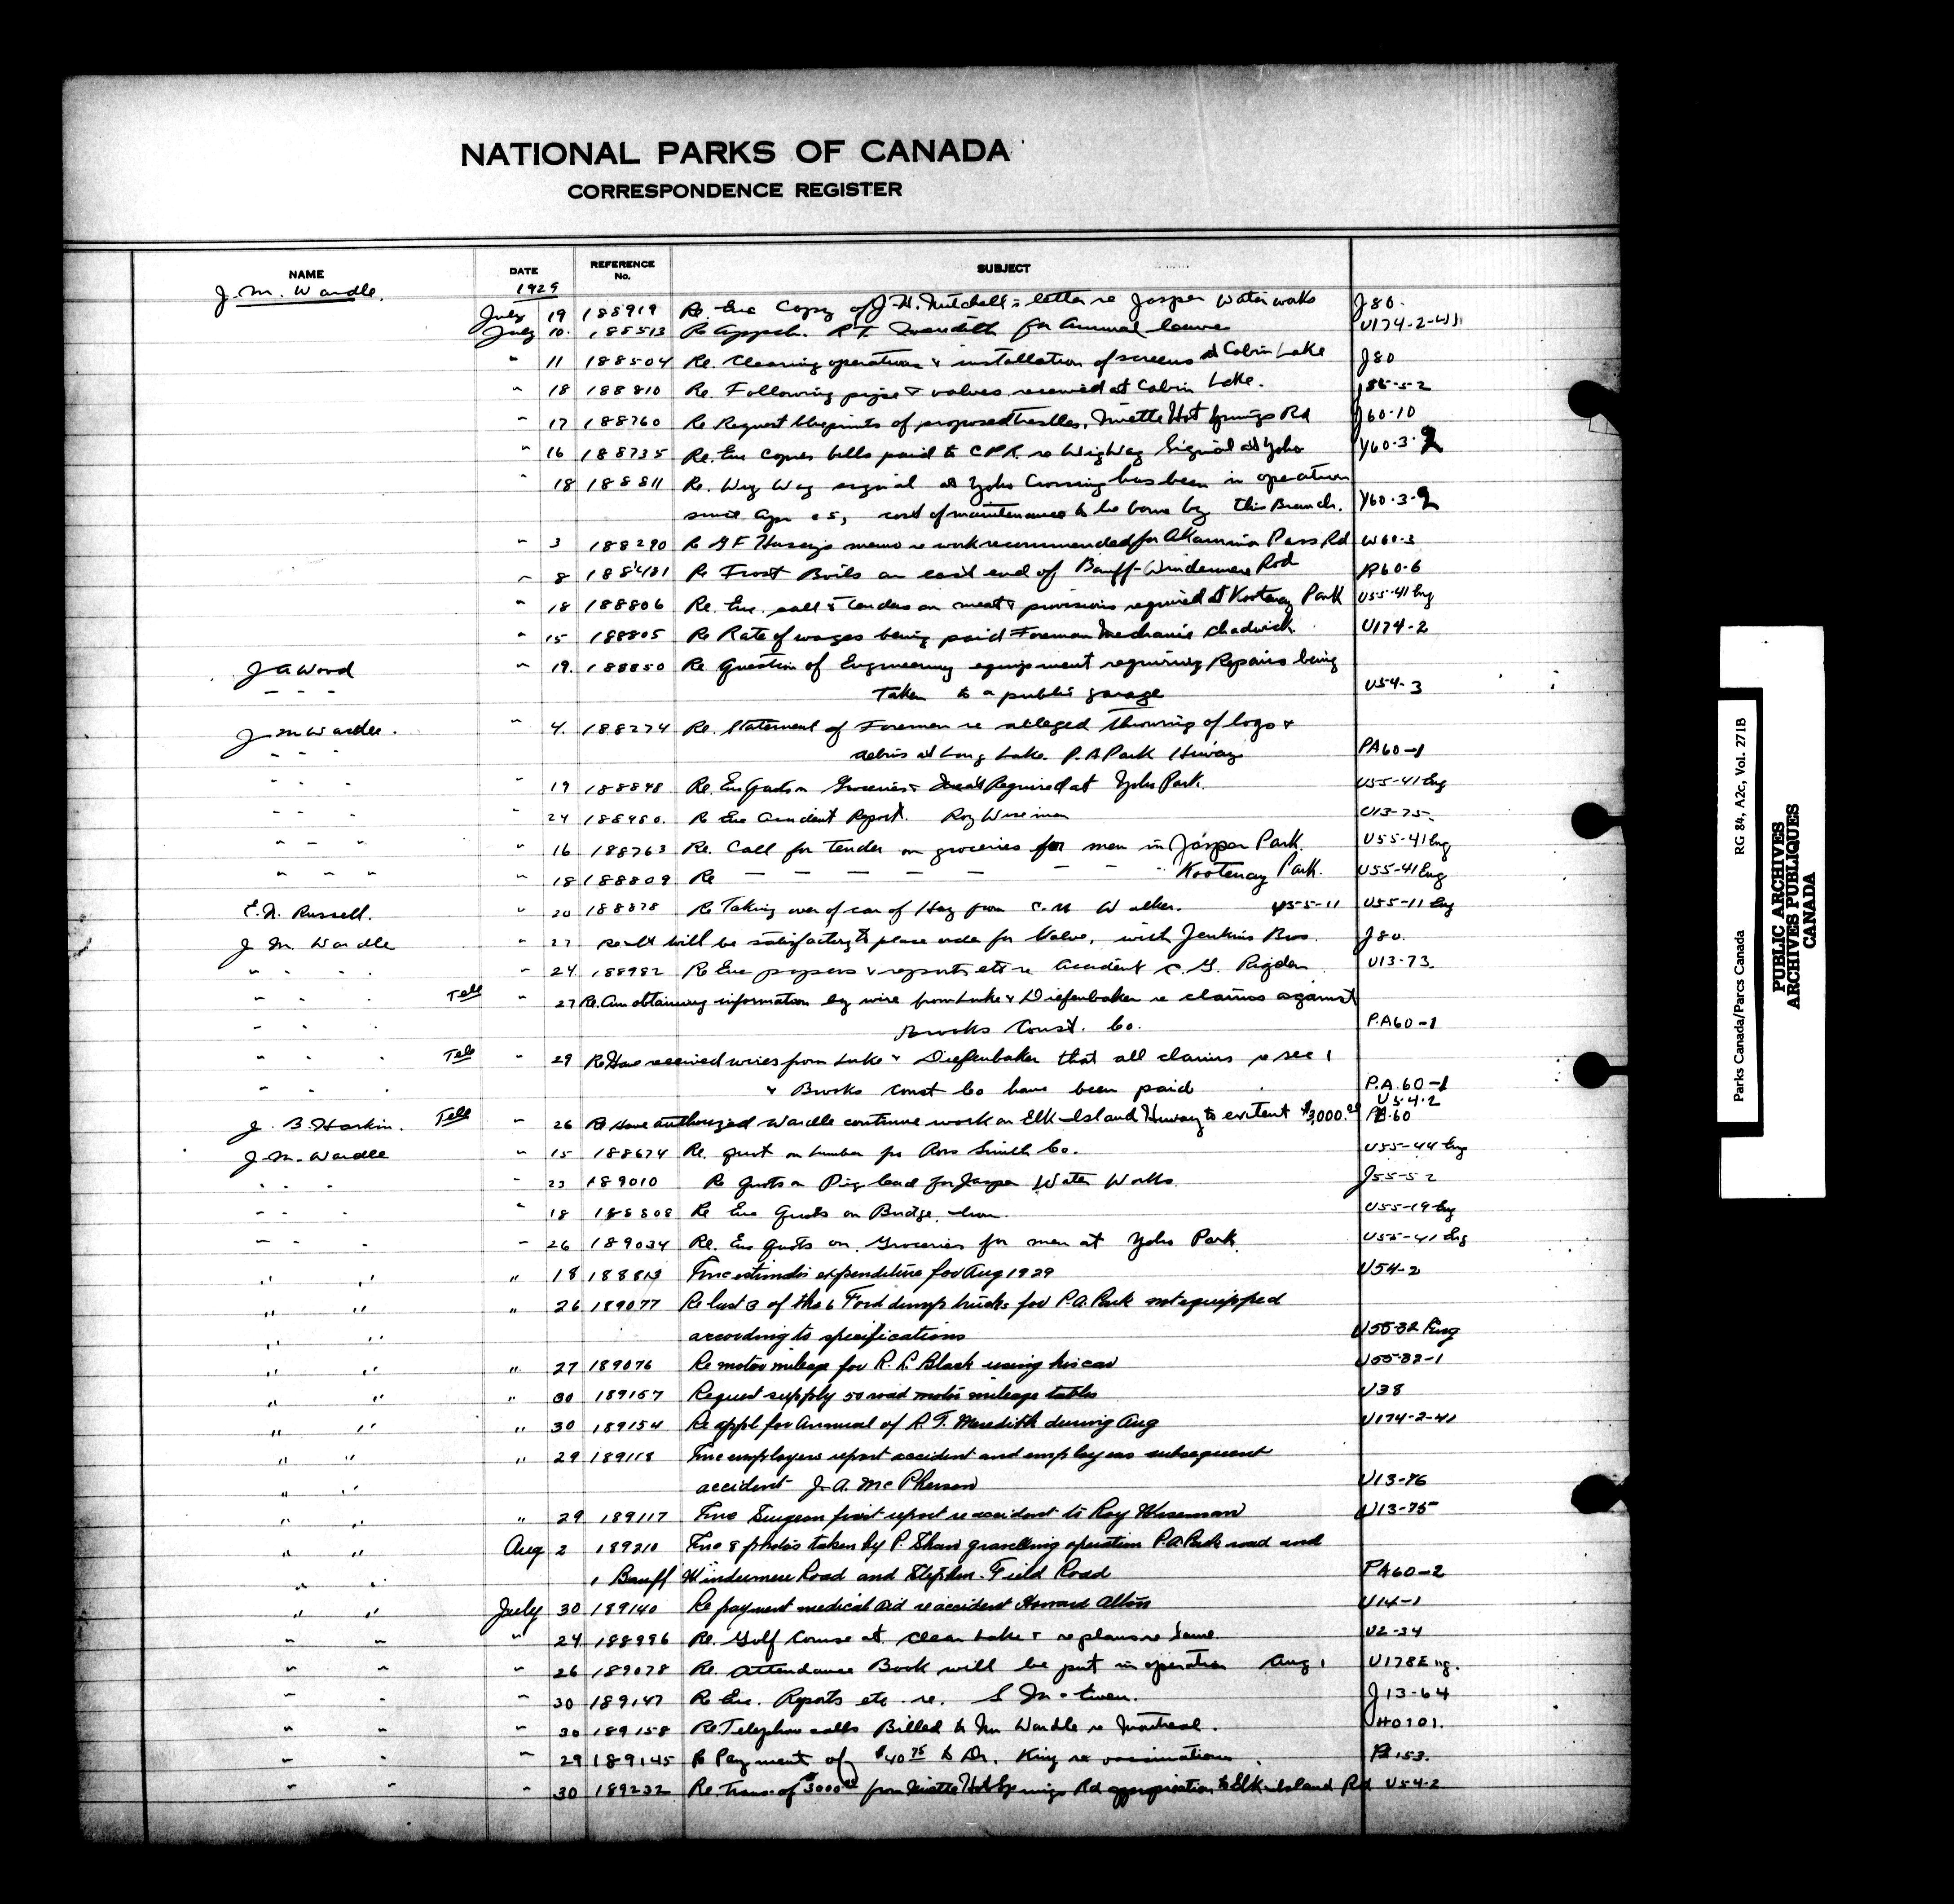 NATIONAL PARKS OF CANADA
CORRESPONDENCE REGISTER
NAME DATE REFERENCE No. SUBJECT
J. M. Wardle. 1929
July 19 188919 Re. Enc Copy of J. H. Mitchell's letter re Jasper Waterworks J80.
July 10. 188513 Re applctn. R T. Meredith for Annual leave U174-2-41
" 11 188504 Re. Clearing operations & installation of screens at Cabin Lake J80
" 18 188810 Re. Following pipe & valves received at Cabin Lake.
" 17 188760 Re Request blueprints of proposed trestles, Miette Hot Springs Rd J60-10
" 16 188735 Re. Enc Copies bills paid to C.P.R. re WigWag Signal at Yoho Y60-3-2
" 18 188811 Re. Wig Wag signal at Yoho Crossing has been in operation
since Apr 25, cost of maintenance to be borne by this Branch. Y60-3-2
" 3 188290 Re memo re work recommended for Akamina Pass Rd W60-3
" 8 188481 Re Frost Boils on east end of Banff-Windermere Rod K60-6
" 18 188806 Re. Enc. call & tenders on meat & provisions required at Kootenay Park U55-41 Eng
" 15 188805 Re Rate of wages being paid Foreman Mechanic Chadwick U174-2
J A Wood " 19. 188850 Re Question of Engineering equipment requiring Repairs being
" " " Taken to a public garage U54-3
J M Wardle. " 4. 188274 Re. Statement of Foreman re alleged throwing of logs &
" " " debris at Long Lake. P.A Park Hiway PA60-1
" " " " 19 188848 Re. Enc Quots on Groceries & Meat Required at Yoho Park. U55-41 Eng
" " " " 24 188980. Re Enc Accident Report. Roy Wiseman U13-75
" " " " 16 188763 Re. Call for tender on groceries for men in Jasper Park. U55-41 Eng
" " " " 18 188809 Re — — — — — — — " Kootenay Park. U55-41 Eng
E. N. Russell. " 20 188878 Re Taking over of car of Hay from C. M Walker. U55-11 U55-11 Eng
J M Wardle " 27 Re It will be satisfactory to place order for Valve, with Jenkins Bros. J80.
" " " " 24 188982 Re Enc papers & reports etc re Accident C. G. Rigden U13-73.
" " " Tele " 27 Re. Am obtaining information by wire from Luke & Diefenbaker re claims against
" " " Brooks Const. Co. P.A60-1
" " " Tele " 29 Re Have received wires from Luke & Diefenbaker that all claims re sec 1
" " " & Brooks Const Co have been paid P.A.60-1
U54-2
J. B. Harkin. Tele " 26 Re Have authorized Wardle continue work on Elk Island Hiway to extent $3,000.00 60
J. M. Wardle " 15 188674 Re. quot on lumber fr Ross Smith Co. U55-44 Eng
" " " " 23 189010 Re Quots on Pig lead for Jasper Water Works. J55-52
" " " " 18 188808 Re Enc Quots on Bridge Iron. U55-19 Eng
" " " " 26 189034 Re. Enc Quots on Groceries for men at Yoho Park. U55-41 Eng
" " " 18 188813 Enc estimates expenditure for Aug 1929 U54-2
" " " 26 189077 Re last 3 of the 6 Ford dump trucks for P.A. Park not equipped
" " according to specifications U55-32 Eng
" " " 27 189076 Re motor mileage for R. L. Black using his car U55-32-1
" " " 30 189157 Request supply 50 road motor mileage tables U38
" " " 30 189154 Re appl for Annual of R. T. Meredith during Aug U174-2-41
" " " 29 189118 Enc employers report accident and employees subsequent
" " accident J. A. McPherson U13-76
" " " 29 189117 Enc Surgeon first report re accident to Roy Wiseman U13-75
" " Aug 2 189210 Enc 8 photos taken by P. Shaw gravelling operation P.A. Park road and
" " Banff Windermere Road and Stephen-Field Road PA60-2
" " July 30 189140 Re payment medical aid re accident Howard U14-1
" " " 24 188996 Re. Golf Course at Clear Lake & re plans re same. U2-34
" " " 26 189078 Re. Attendance Book will be put in operation Aug 1 U178 Eng.
" " " 30 189147 Re Enc. Reports etc. re. S McEwen. J13-64
" " " 30 189158 Re. Telephone calls Billed to Mr Wardle re Montreal.
" " " 29 189145 Re Payment of $40.75 to Dr. King re vaccinations.
" " " 30 189232 Re. Trans. of $3000.00 from Miette Hot Springs Rd appropriation to Elk-Island Rd U54-2
Parks Canada/Parcs Canada RG 84, A2c, Vol. 271B
PUBLIC ARCHIVES
ARCHIVES PUBLIQUES
CANADA